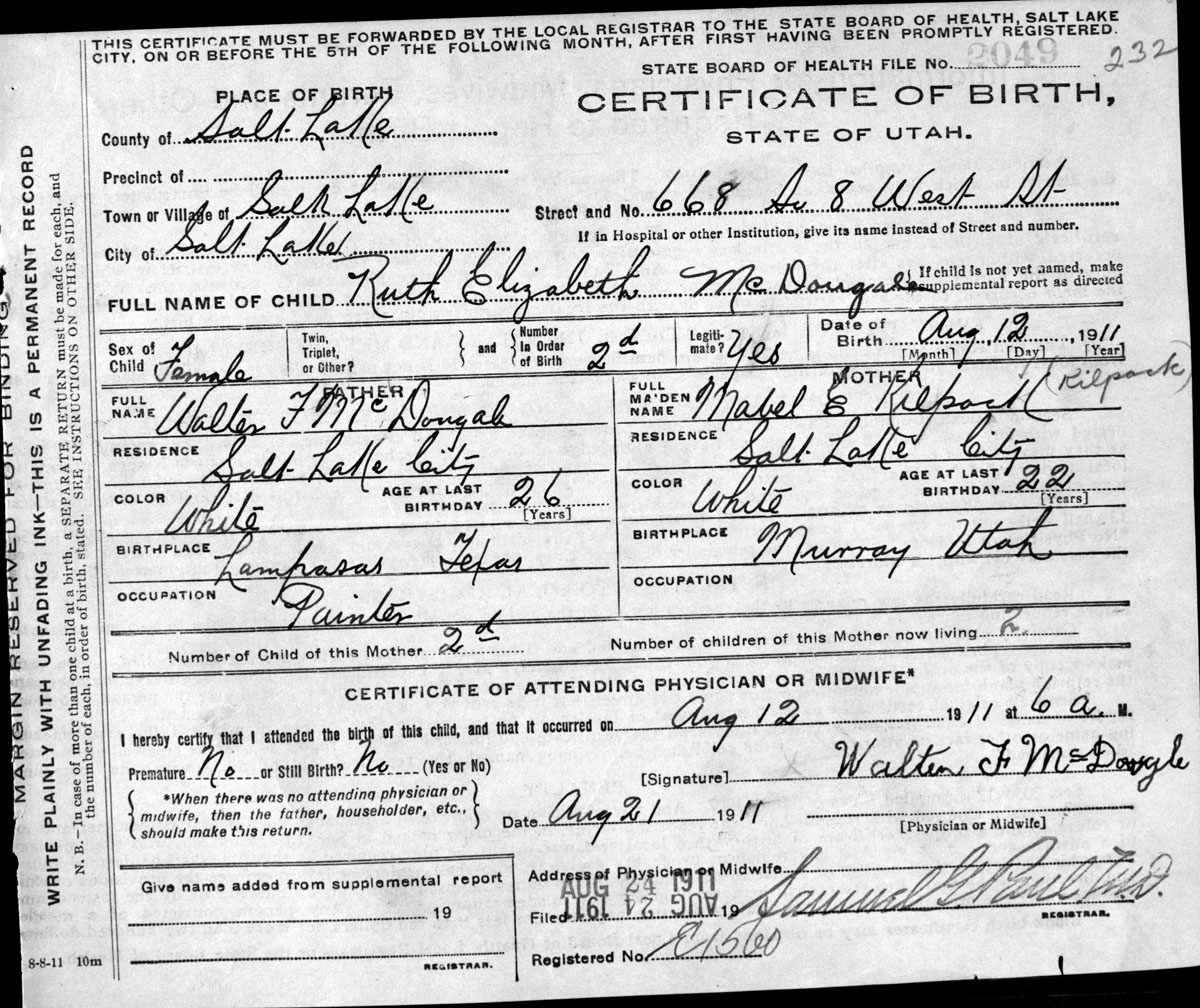 THIS CERTIFICATE MUST BE FORWARDED BY THE LOCAL REGISTRAR TO THE STATE BOARD OF HEALTH, SALT LAKE
CITY, ON OR BEFORE THE 5TH OF THE FOLLOWING MONTH, AFTER FIRST HAVING BEEN PROMPTLY REGISTERED.
STATE BOARD OF HEALTH FILE No. 2049 232
PLACE OF BIRTH
CERTIFICATE OF BIRTH,
STATE OF UTAH.
County of Salt Lake
Precinct of
Town or Village of Salt Lake
Street and No. 668 So 8 West St
If in Hospital or other Institution, give its name instead of Street and number.
City of Salt Lake
FULL NAME OF CHILD Ruth Elizabeth McDougale
If child is not yet named, make
supplemental report as directed
Sex of Child Female
Twin, Triplet, or Other?
and
Number In Order of Birth 2d
Legiti-mate? Yes
Date of Birth Aug, 12, 1911
[Month] [Day] [Year]
FATHER
FULL NAME Walter F McDougale
RESIDENCE Salt Lake City
COLOR White
AGE AT LAST BIRTHDAY 26
[Years]
BIRTHPLACE Lampasas Texas
OCCUPATION Painter
MOTHER
FULL MA'DEN NAME Mabel E Kilpack (Kilpack)
RESIDENCE Salt Lake City
COLOR White
AGE AT LAST BIRTHDAY 22
[Years]
BIRTHPLACE Murray Utah
OCCUPATION
Number of Child of this Mother 2d
Number of children of this Mother now living 2
CERTIFICATE OF ATTENDING PHYSICIAN OR MIDWIFE*
I hereby certify that I attended the birth of this child, and that it occurred on Aug 12 1911 at 6 a. M.
Premature No or Still Birth? No (Yes or No)
[Signature] Walter F McDovgle
*When there was no attending physician or
midwife, then the father, householder, etc.,
should make this return.
Date Aug 21 1911
[Physician or Midwife]
Give name added from supplemental report
19
REGISTRAR.
Address of Physician or Midwife
AUG 24 1911
Filed AUG 24 1911 19 Samuel G Paul M.D.
REGISTRAR.
Registered No. E1560
8-8-11 10m
MARGIN RESERVED FOR BINDING
WRITE PLAINLY WITH UNFADING INK—THIS IS A PERMANENT RECORD
N. B.—In case of more than one child at a birth, a SEPARATE RETURN must be made for each, and
the number of each, in order of birth, stated. SEE INSTRUCTIONS ON OTHER SIDE.